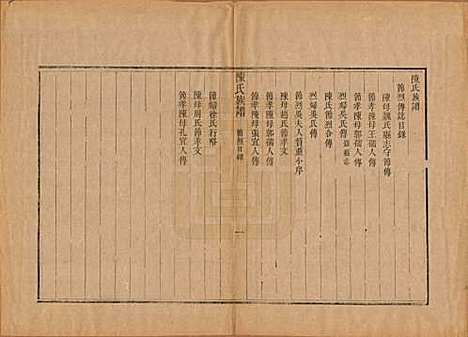 陳氏族譜
節烈傳誌目錄
陳母魏氏勵志守節傳
節孝陳母王孺人傳
節孝陳母郭孺人傳
節婦吳氏傳
烈婦吳氏傳
陳氏節烈合傳
節烈吳夫人哲重小序
陳母趙氏節孝文
節孝陳母郭孺人傳
節孝陳母張宜人傳
陳氏族譜 節烈目錄 一
節婦徐氏行略
陳母周氏節孝文
節孝陳母孔宜人傳